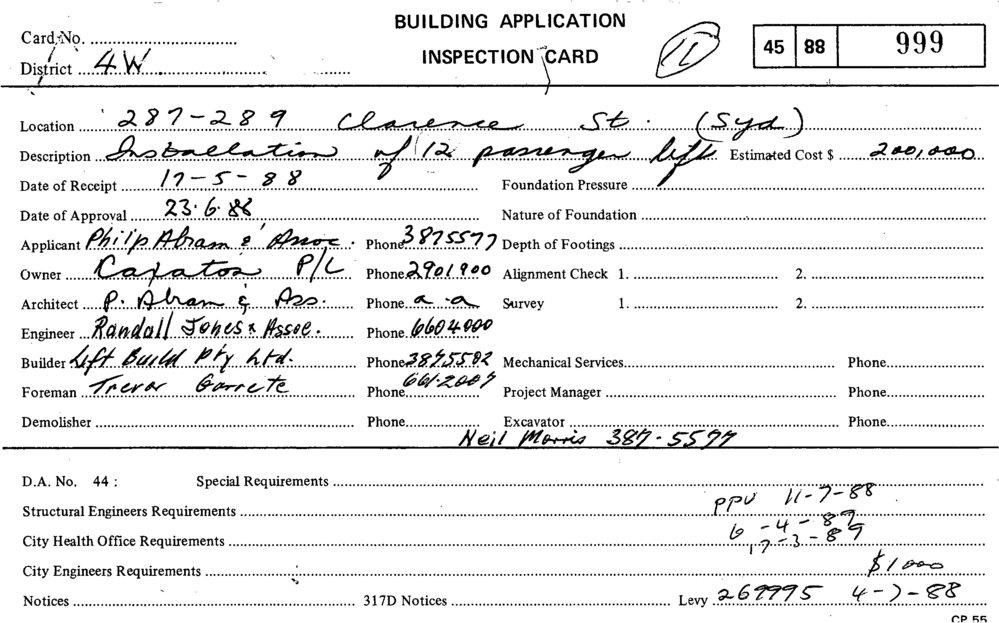 BUILDING APPLICATION
INSPECTION CARD
Card No.
District 4W
11
45 88 999
Location 287-289 Clarence St. (Syd)
Description Installation of 12 passenger lift Estimated Cost $ 200,000
Date of Receipt 17-5-88
Foundation Pressure
Date of Approval 23.6.88 Nature of Foundation
Applicant Philip Abram & Assoc. Phone 3875577 Depth of Footings
Owner P/L Phone 2901900 Alignment Check 1. 2.
Architect P. Abram & Ass. Phone a.a Survey 1. 2.
Engineer Randall Jones & Assoc. Phone 6604000
Builder Lift Build Pty Ltd. Phone 3875502 Mechanical Services Phone
Foreman Trevor Garrete Phone 661.2007 Project Manager Phone
Demolisher Phone Excavator Phone
Neil Morris 387-5577
D.A. No. 44 : Special Requirements
PPU 11-7-88
Structural Engineers Requirements
6-4-89
City Health Office Requirements 17-3-89
City Engineers Requirements $1000
Notices 317D Notices Levy 269995 4-7-88
CP 55